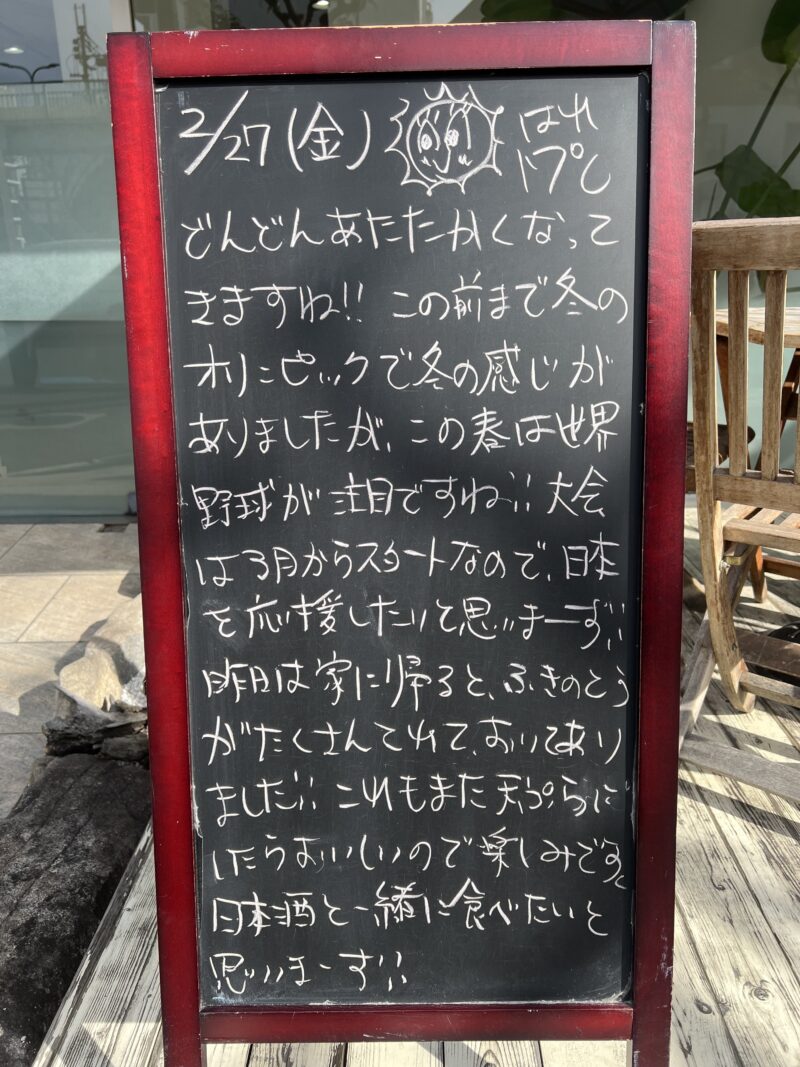 2/27(金) はれ
トプし
どんどんあたたかくなって
きますね!! この前まで冬の
オリンピックで冬の感じが
ありましたが、この春は世界
野球が注目ですね!! 大会
は3月からスタートなので、日本
を応援したいと思いまーす!!
昨日は家に帰ると、ふきのとう
がたくさんとれて、おいてあり
ました!! これもまた天ぷらに
したらおいしいので楽しみです。
日本酒と一緒に食べたいと
思いまーす!!